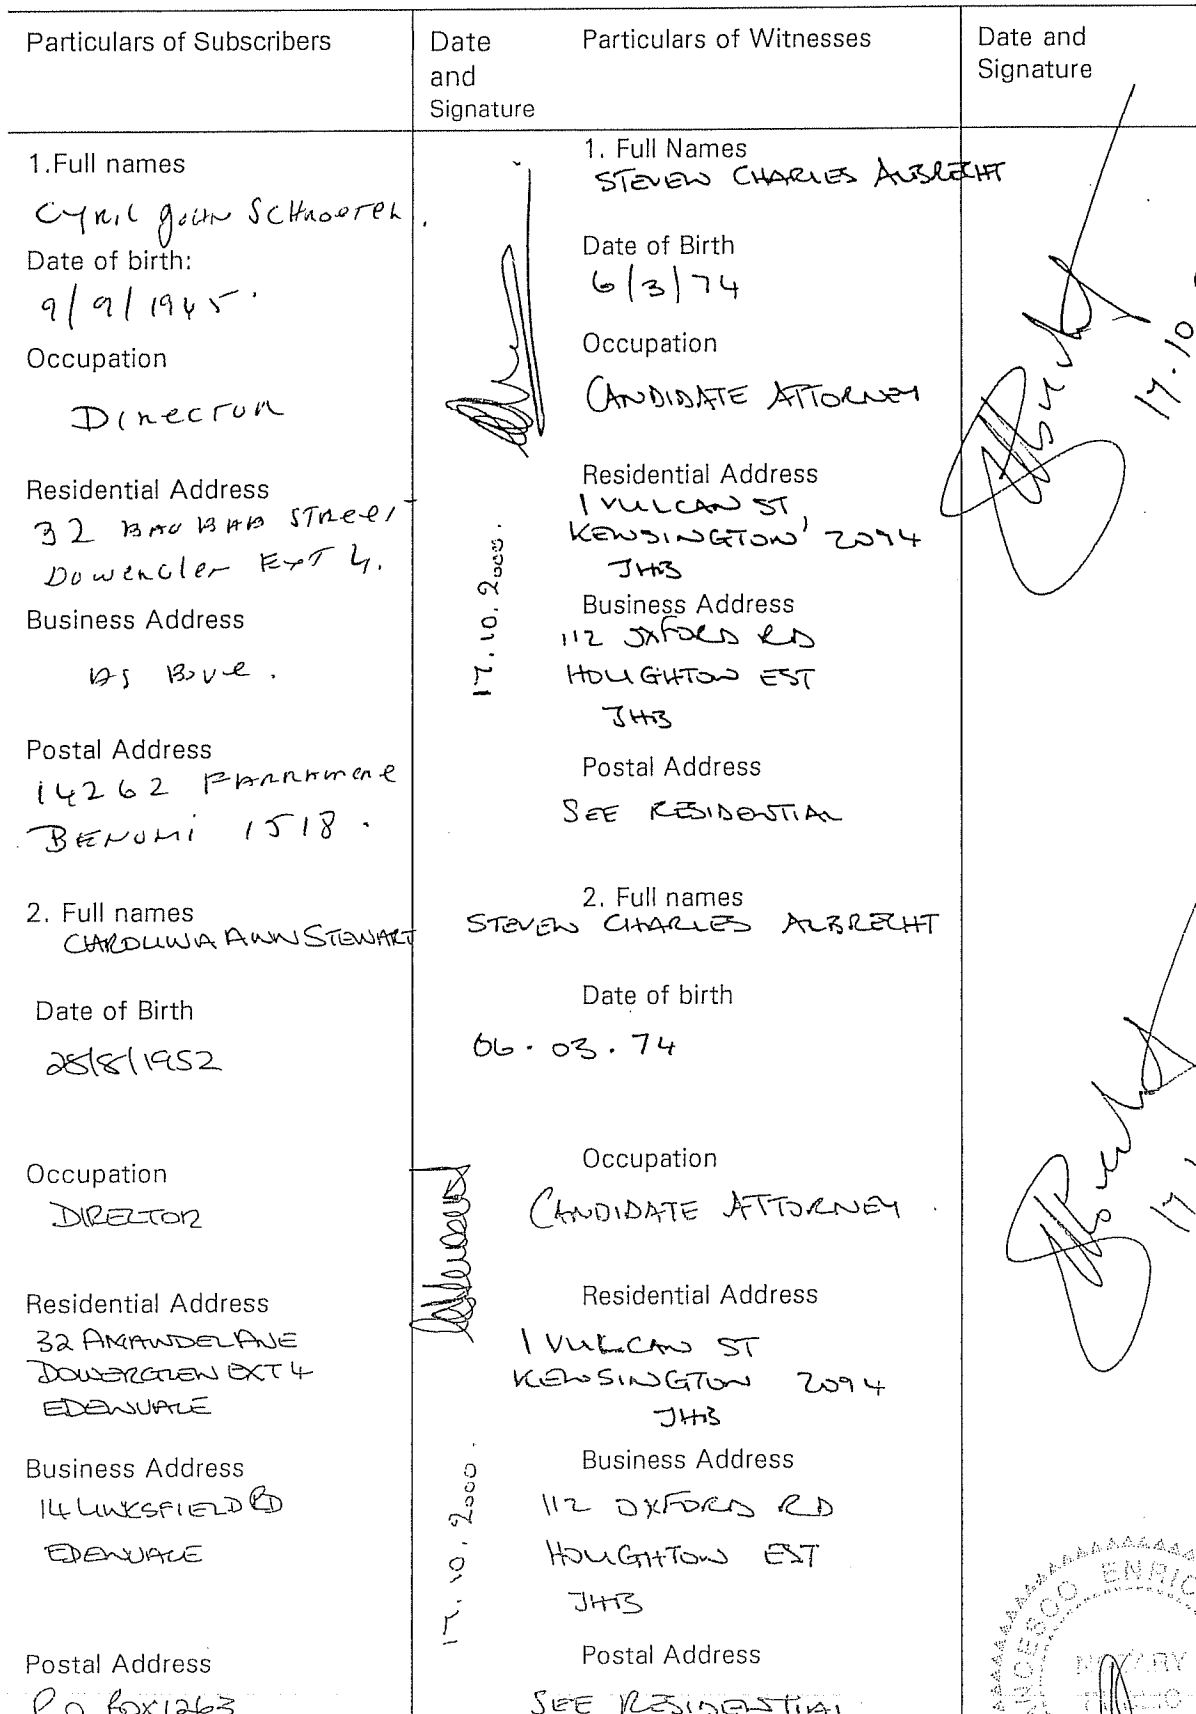 Particulars of Subscribers
Date
and
Signature
Particulars of Witnesses
Date and
Signature
1.Full names
CYRIL JOHN
Date of birth:
9/9/1945.
Occupation
DIRECTOR
Residential Address
32 BAOBAB STREET
EXT 4.
Business Address
AS BOVE.
Postal Address
14262 FARRAMERE
BENONI 1518.
17.10.2000.
1. Full Names
STEVEN CHARLES ALBRECHT
Date of Birth
6/3/74
Occupation
CANDIDATE ATTORNEY
Residential Address
1 VULCAN ST,
KENSINGTON 2094
JHB
Business Address
112 OXFORD RD
HOUGHTON EST
JHB
Postal Address
SEE RESIDENTIAL
17.10
2. Full names
ANN STEWART
Date of Birth
28/8/1952
Occupation
DIRECTOR
Residential Address
32
DOWERGLEN EXT 4
EDENVALE
Business Address
14 LINKSFIELD RD
EDENVALE
Postal Address
P O BOX 1263
17.10.2000.
2. Full names
STEVEN CHARLES ALBRECHT
Date of birth
06.03.74
Occupation
CANDIDATE ATTORNEY.
Residential Address
1 VULCAN ST
KENSINGTON 2094
JHB
Business Address
112 OXFORD RD
HOUGHTON EST
JHB
Postal Address
SEE RESIDENTIAL
17.
NOTARY